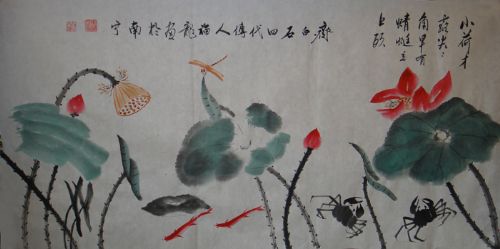 小荷才
露尖々
角早有
蜻蜓立
上頭
齊白石四代傳人龍画於南宁